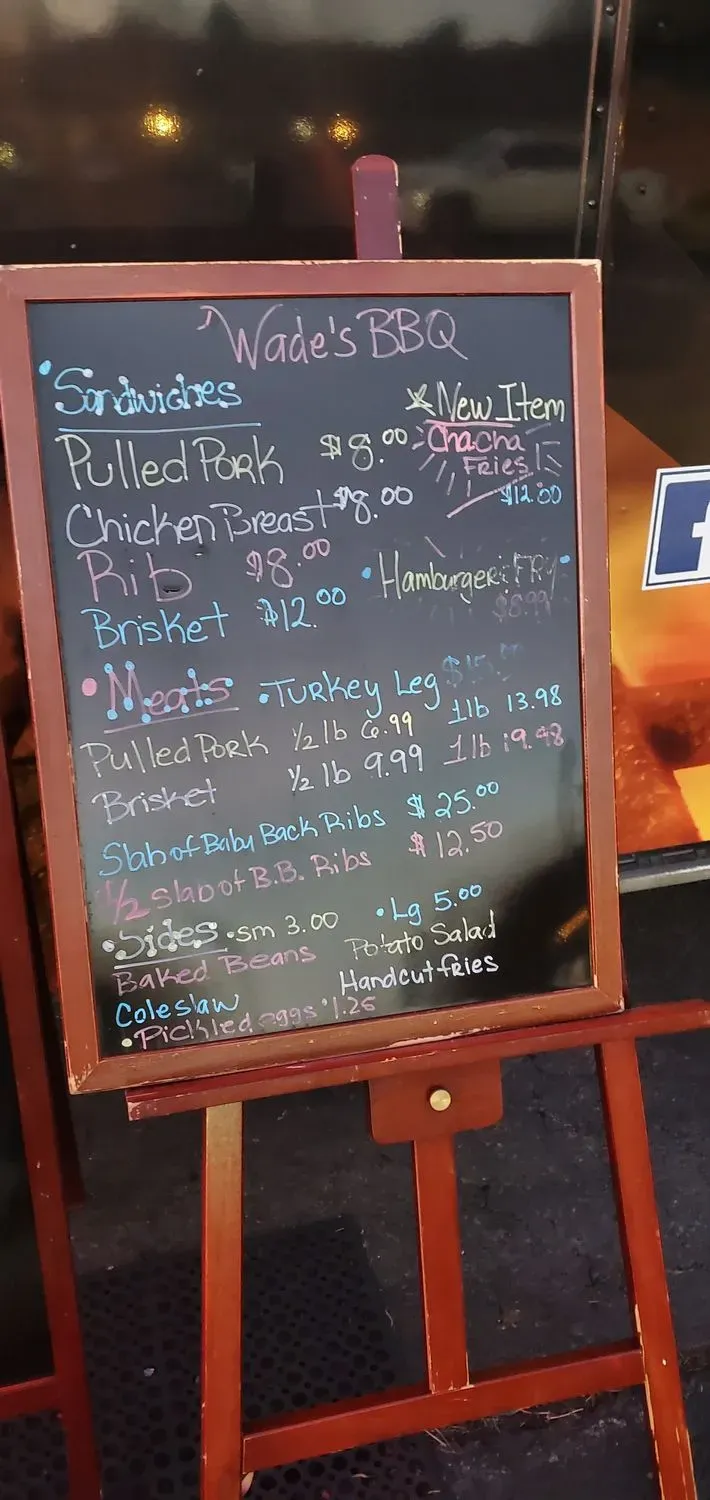 Wade's BBQ
Sandwiches
New Item
Pulled Pork $8.00
ChaCha
Fries!
$12.00
Chicken Breast $8.00
Rib $8.00
• Hamburger : FRY •
$8.99
Brisket $12.00
• Meats • Turkey Leg
Pulled Pork 1/2 lb 6.99 1lb 13.98
Brisket 1/2 lb 9.99 1lb 19.98
Slab of Baby Back Ribs $25.00
1/2 Slab of B.B. Ribs $12.50
• Sides • sm 3.00 • Lg 5.00
Baked Beans Potato Salad
Coleslaw Handcut fries
• Pickled eggs 1.25
f